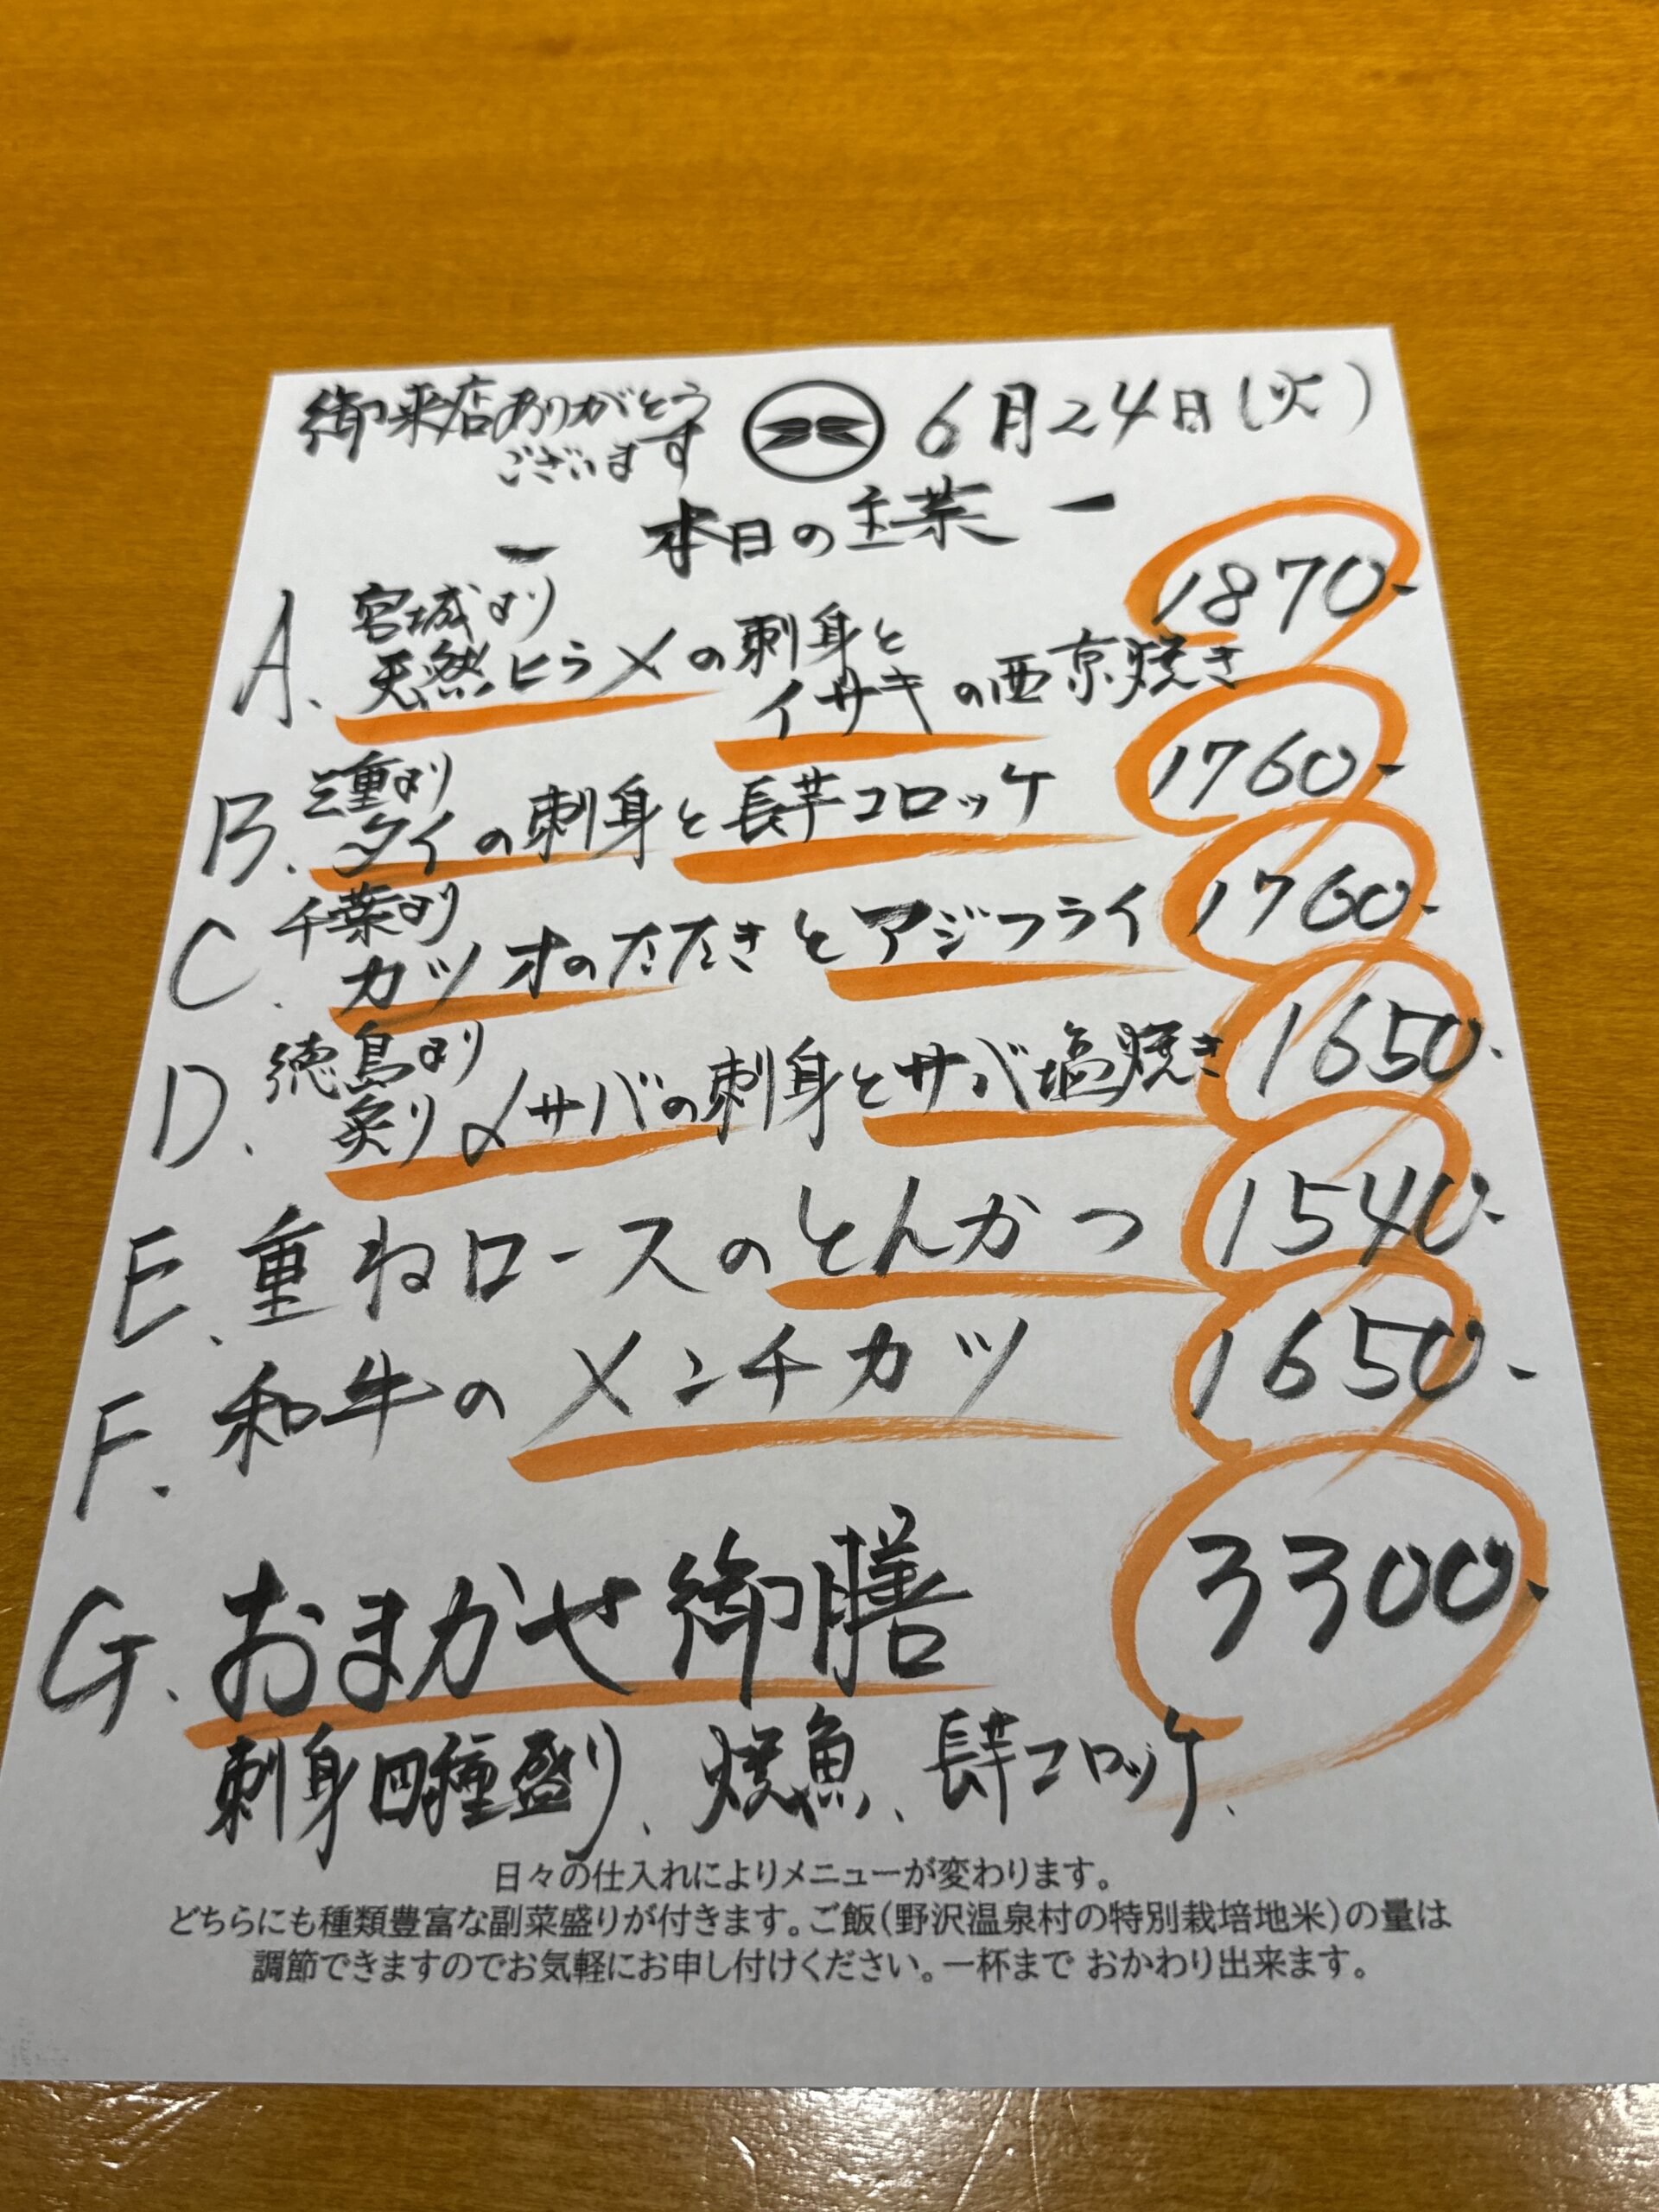 御来店ありがとう
ございます
6月24日(火)
ー 本日の主菜 ー
A. 宮城より
天然ヒラメの刺身と
イサキの西京焼き
1870-
B. 三重より
タイの刺身と長芋コロッケ
1760-
C. 千葉より
カツオのたたきとアジフライ
1760-
D. 徳島より
炙り〆サバの刺身とサバ塩焼き
1650-
E. 重ねロースのとんかつ
1540-
F. 和牛のメンチカツ
1650-
G. おまかせ御膳
3300-
刺身四種盛り、焼魚、長芋コロッケ、
日々の仕入れによりメニューが変わります。
どちらにも種類豊富な副菜盛りが付きます。ご飯(野沢温泉村の特別栽培地米)の量は
調節できますのでお気軽にお申し付けください。一杯まで おかわり出来ます。